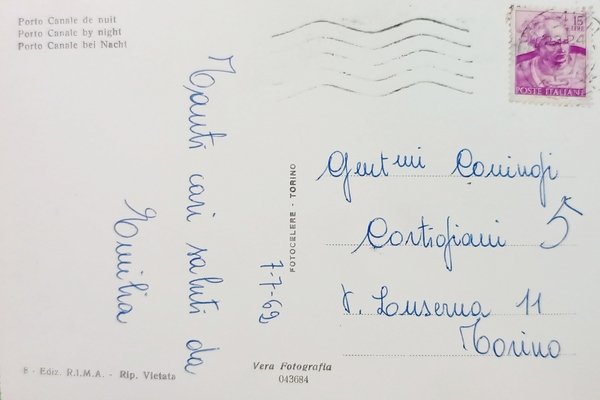 Porto Canale de nuit
Porto Canale by night
Porto Canale bei Nacht
Tanti cari saluti da
Emilia
7-7-62
FOTOCELERE - TORINO
15
LIRE
POSTE ITALIANE
Gent mi Coniugi
Cortigiani 5
V. Luserna 11
Torino
8 - Ediz. R.I.M.A. - Rip. Vietata
Vera Fotografia
043684